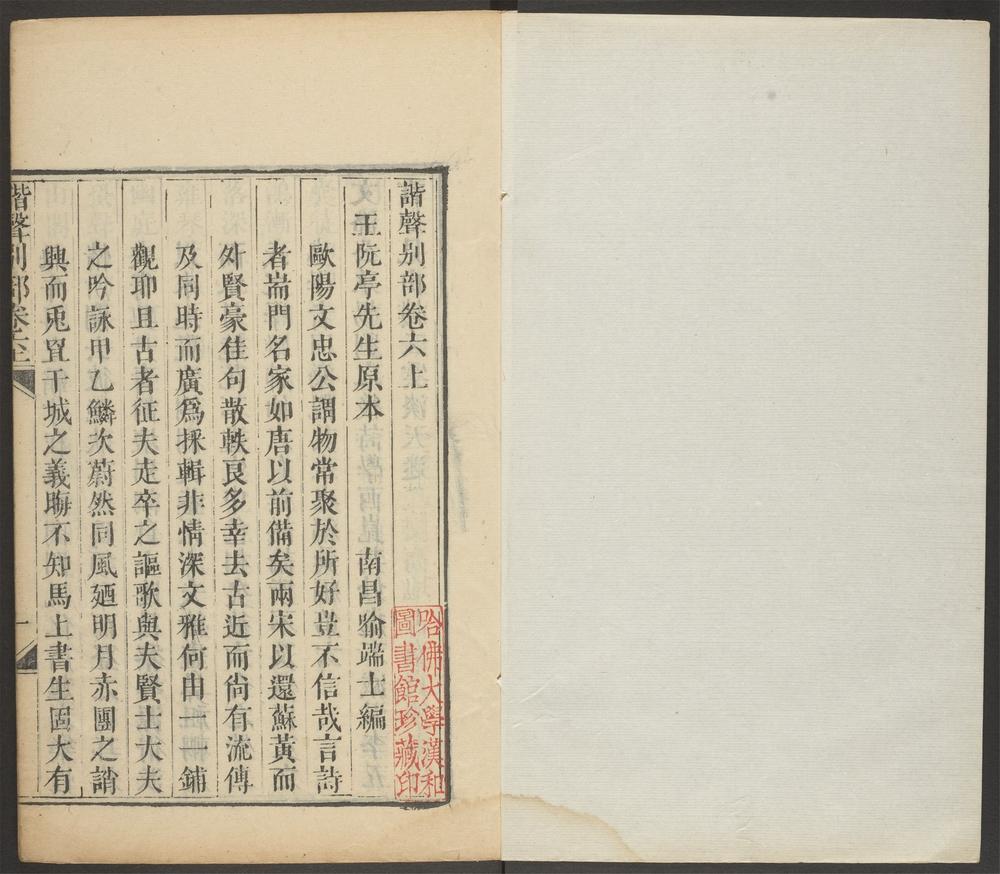 諧聲别部卷六上
王阮亭先生原本
南昌喻端士編
歐陽文忠公謂物常聚於所好豈不信哉言詩
者耑門名家如唐以前備矣兩宋以還蘇黃而
外賢豪佳句散軼良多幸去古近而尚有流傳
及同時而廣爲採輯非情深文雅何由一一鋪
觀耶且古者征夫走卒之謳歌與夫賢士大夫
之吟詠甲乙鱗次蔚然同風廼明月赤團之誚
興而兎罝干城之義晦不知馬上書生固大有
諧聲别部卷六上
一
哈佛大學漢和
圖書館珍藏印